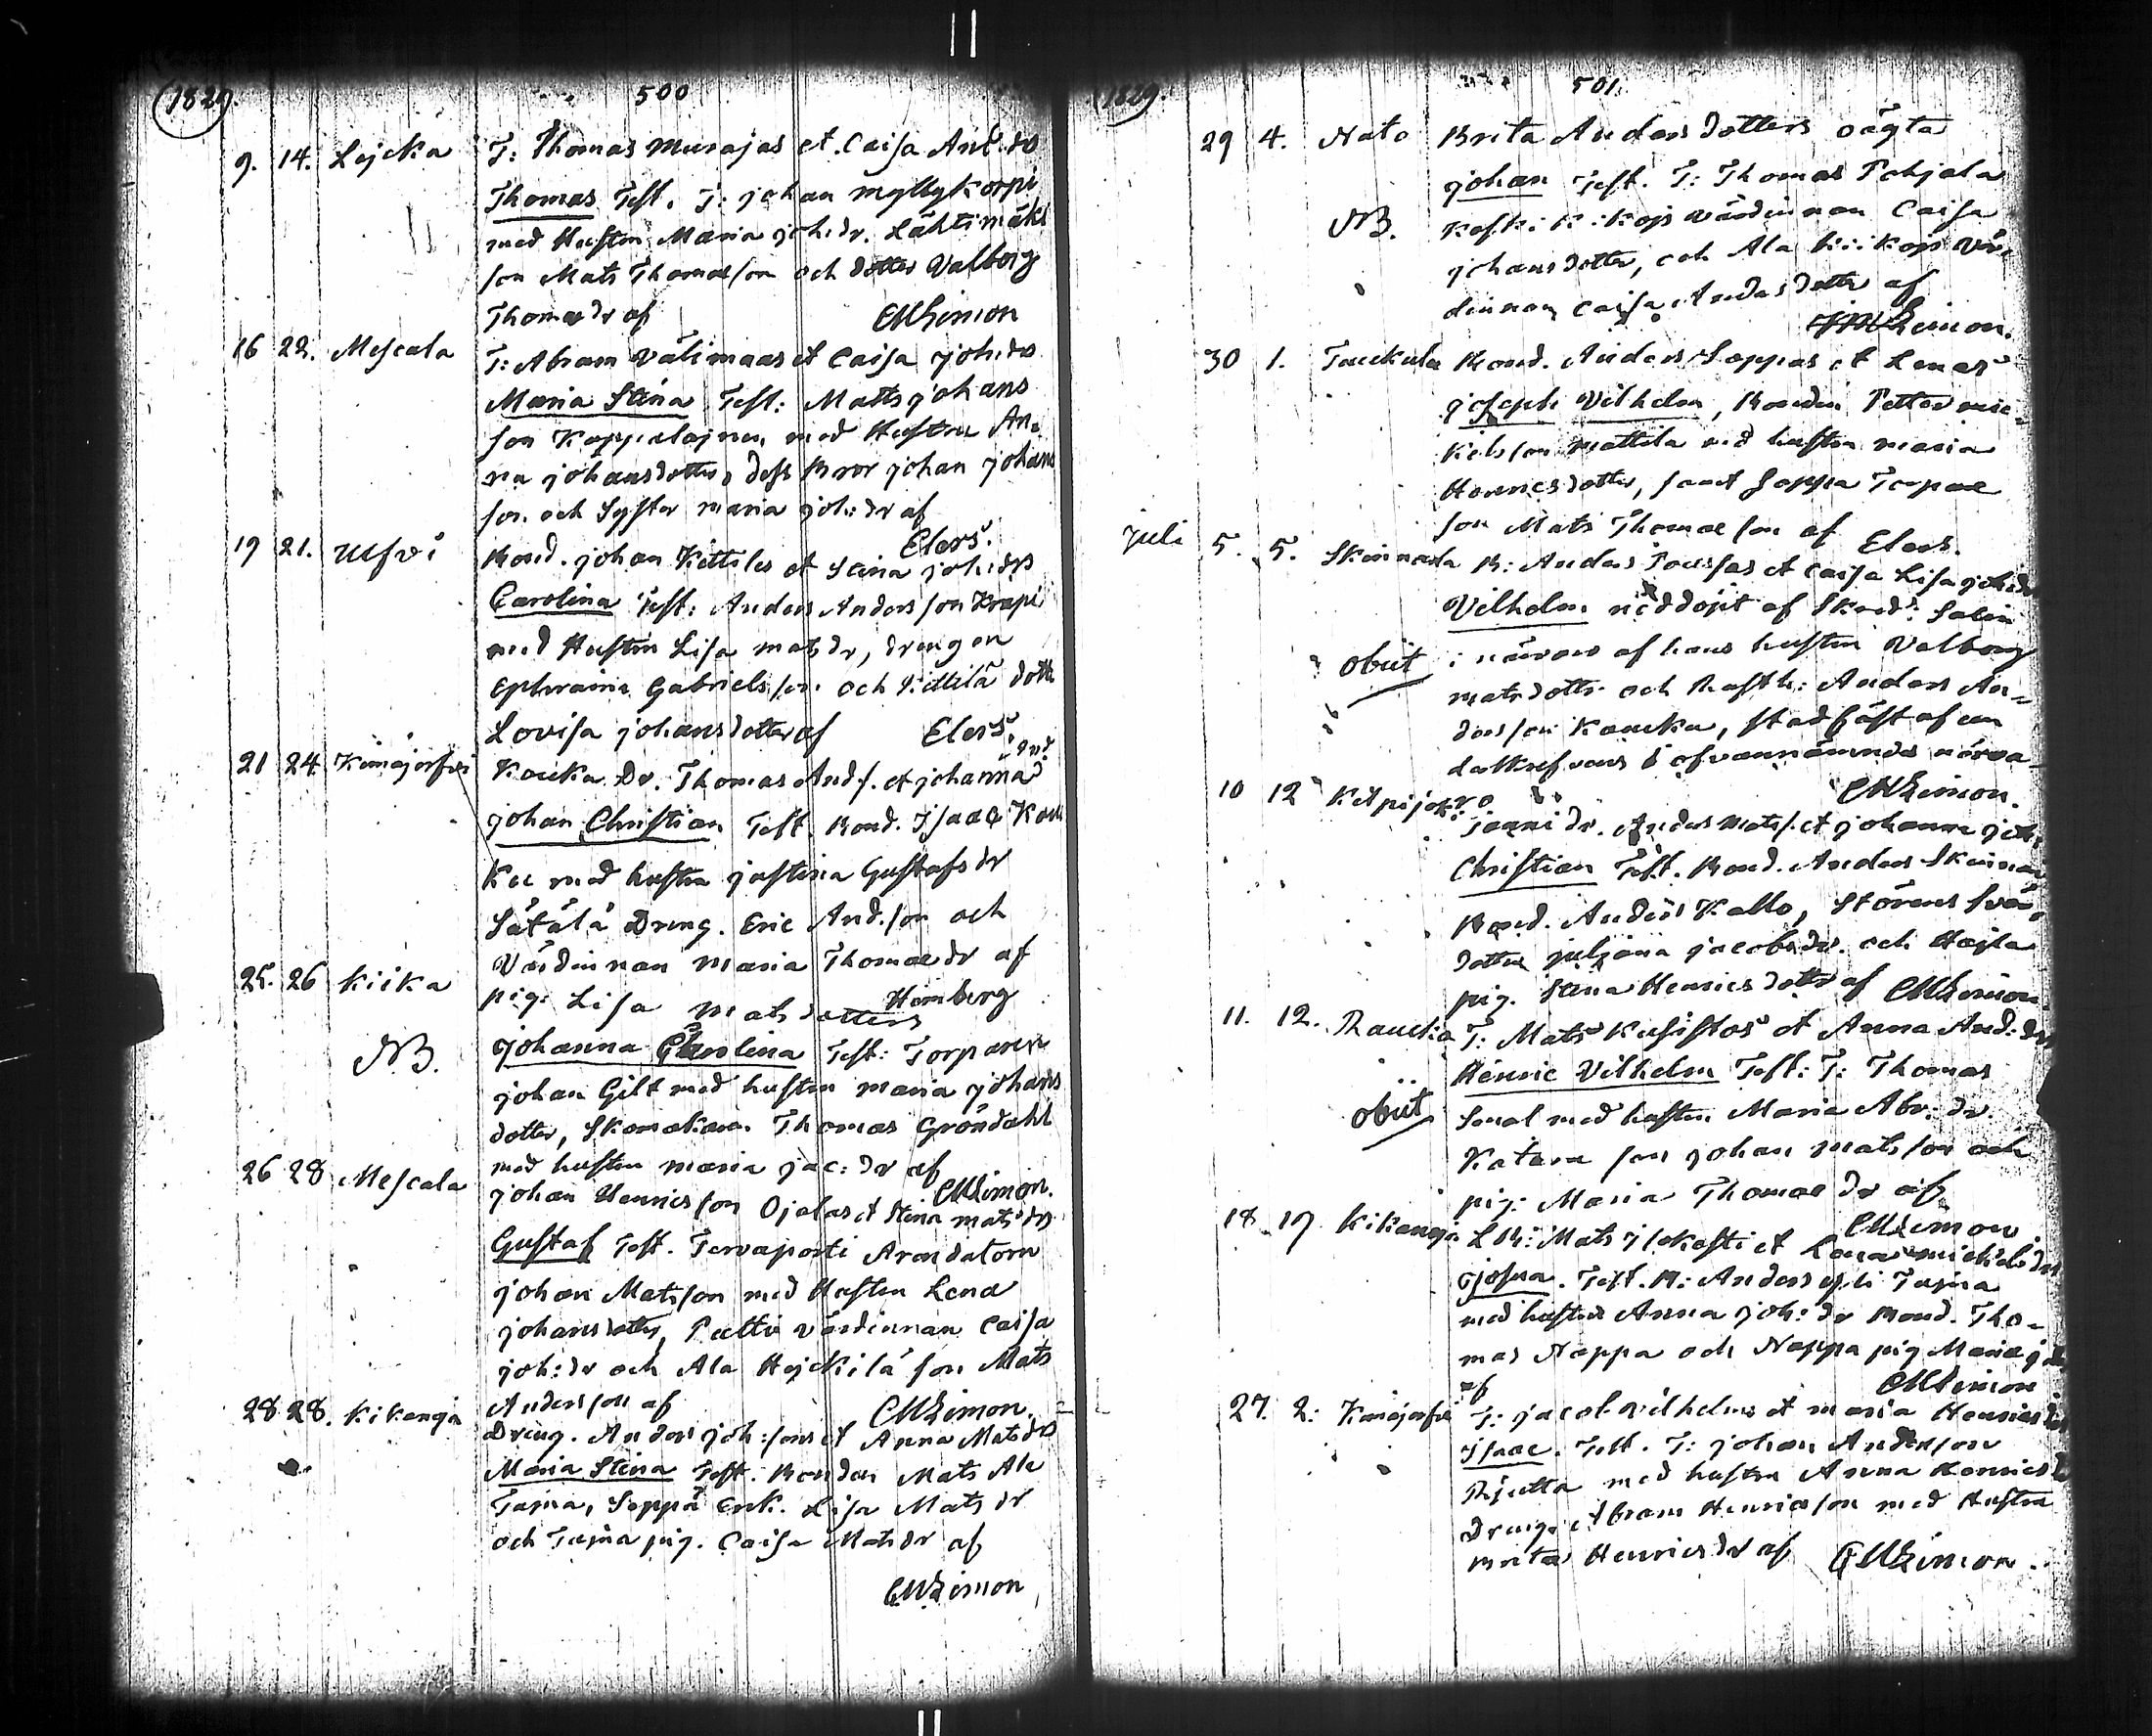 1829.
500
9. 14. Lejcka T: Thomas Murajas et. Caisa And:dr
Thomas Test. T: johan Myllykorpi
med Hustru Maria joh:dr. Lähtimäki
son Mats Thomasson och dotter Valborg
Thomædr af CMLimon
16 22. Mescala T: Abram Välimaas et Caisa joh:dr
Maria Stina Test: Matts johans
son Koppelojnen med Hustru An-
na johansdotter, dess Bror johan johans
son och Syster maria joh:dr af
Elers.
19 21. Bond. johan Kittiles et Stina joh:drs
Carolina Test: Anders Andersson Krapi
med Hustru Lisa mats dr, drengen
Ephraim Gabrielsson och Kittilä dottr
Lovisa johansdotter af Elers.
21 24 Kimajerfvi Kouka Dr. Thomas And/. et johanna And
johan Christian Test Bond. Isaac Kou
ka med hustru justina Gustafsdr
Sätälä Dreng. Eric And.son och
Värdinnan Maria Thomædr af
Himberg
25. 26 Kiika pig: Lisa Matsdotters
NB. johanna Carolina Test: Torparen
johan Gilt med hustru maria johans
dotter, Skomakarn Thomas Gröndahl
med hustru maria jac:dr af
CMLimon.
26 28 Mescala johan Henricsson Ojalas et Stina matsdrs
Gustaf Test. Tervaporti Arendatorn
johan Matsson med Hustru Lena
johansdotter, Peltu värdinnan Caisa
joh:dr och Ala Hejckilä son Mats
Andersson af CMLimon.
28 28. Kikengä Dreng. Anders joh:sons et Anna Matsdrs
Maria Stina Test. Bonden Mats Ala
Tajna, Seppä Enk. Lisa Mats dr
och Tajna pig. Caisa Matsdr af
CMLimon
1829.
501
29 4. Nato Brita Andersdotters oägta
johan Test. T: Thomas Pohjala
NB. Keski Kiikojs värdinnan Caisa
johansdotter, och Ala Kiikojs Vär
dinnan Caisa Andersdotter af
CMLimon.
30 1. Bond. Anders Soppas et Lenas
joseph Vilhelm, Bonden Petter mic-
kelsson Mattila med hustru maria
Henricsdotter, samt Soppa Torpare
son Mats Thomæson af Elers.
juli 5. 5. Skinnarla B: Anders Poussas et Caisa Lisa joh:dr
Vilhelm nöddöpt af Skrad: Salin
obiit i närvaro af hans hustru Valborg
matsdotter och Rusth: Anders An-
dersson Koucka, stadfäst af un
dertk ofvannämnde närva
CMLimon.
10 12 Anders Mats/. et johanna joh:
Christian Test. Bond. Anders Skinnar
Bond. Anders Kallo, Störens
dotter juljana jacobsdr. och Hejla
pig. Stina Henricsdotter af CMLimon
11. 12. Rautia T: Mats Kusistos et Anna And:dr
Henric Vilhelm Test: T: Thomas
obiit Smal med hustru Maria Abr:dr.
Katara son johan matsson och
pig: Maria Thomædr af
CMLimon
18 19 Kikengä Mats et Lena michelsdr
josua. Test. B: Anders yli Tajna
med hustru Anna joh:dr Bond. Tho-
mas Nappa och Nappa pig Maria j
af CMLimon
27. 2: Kimajerfvi T: jacob Vilhelms et maria Henricsdr
Isaac. Test. T: johan Andersson
Rijutta med hustru Anna Henricsd
Dreng. Abram Henricsson med Hustru
Brita Henricsdr af CMLimon.